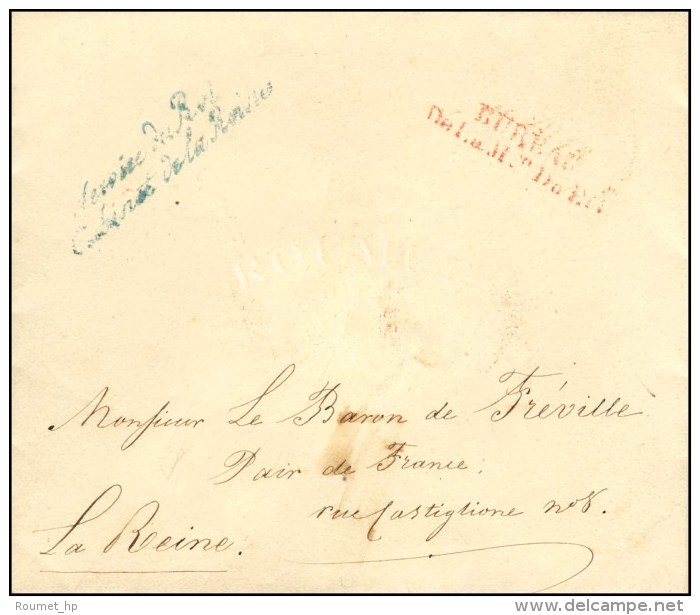 Service du Roi
Cabinet de la Reine
BUREAU
De La M.on Du Roi
Monsieur Le Baron de Fréville
Pair de France,
rue Castiglione no 8.
La Reine.
Roumet_hp
delcampe.net